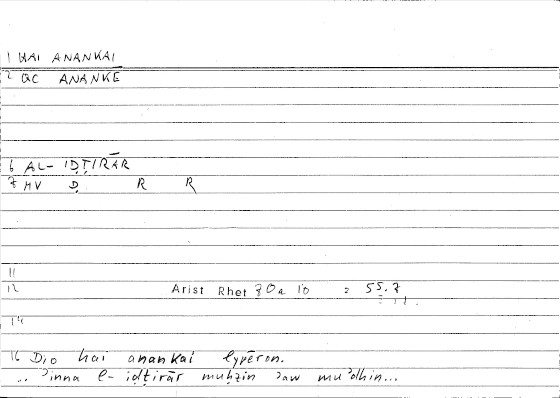 1 HAI ANANKAI
2 QC ANANKE
6 AL- IḌṬIRĀR
7 MV Ḍ R R
11
12 Arist Rhet 70a 10 = 55.7
14
16 Dio hai anankai lypēron.
.. ʾinna l- iḍṭirār muḥzin ʾaw muʾdhin...